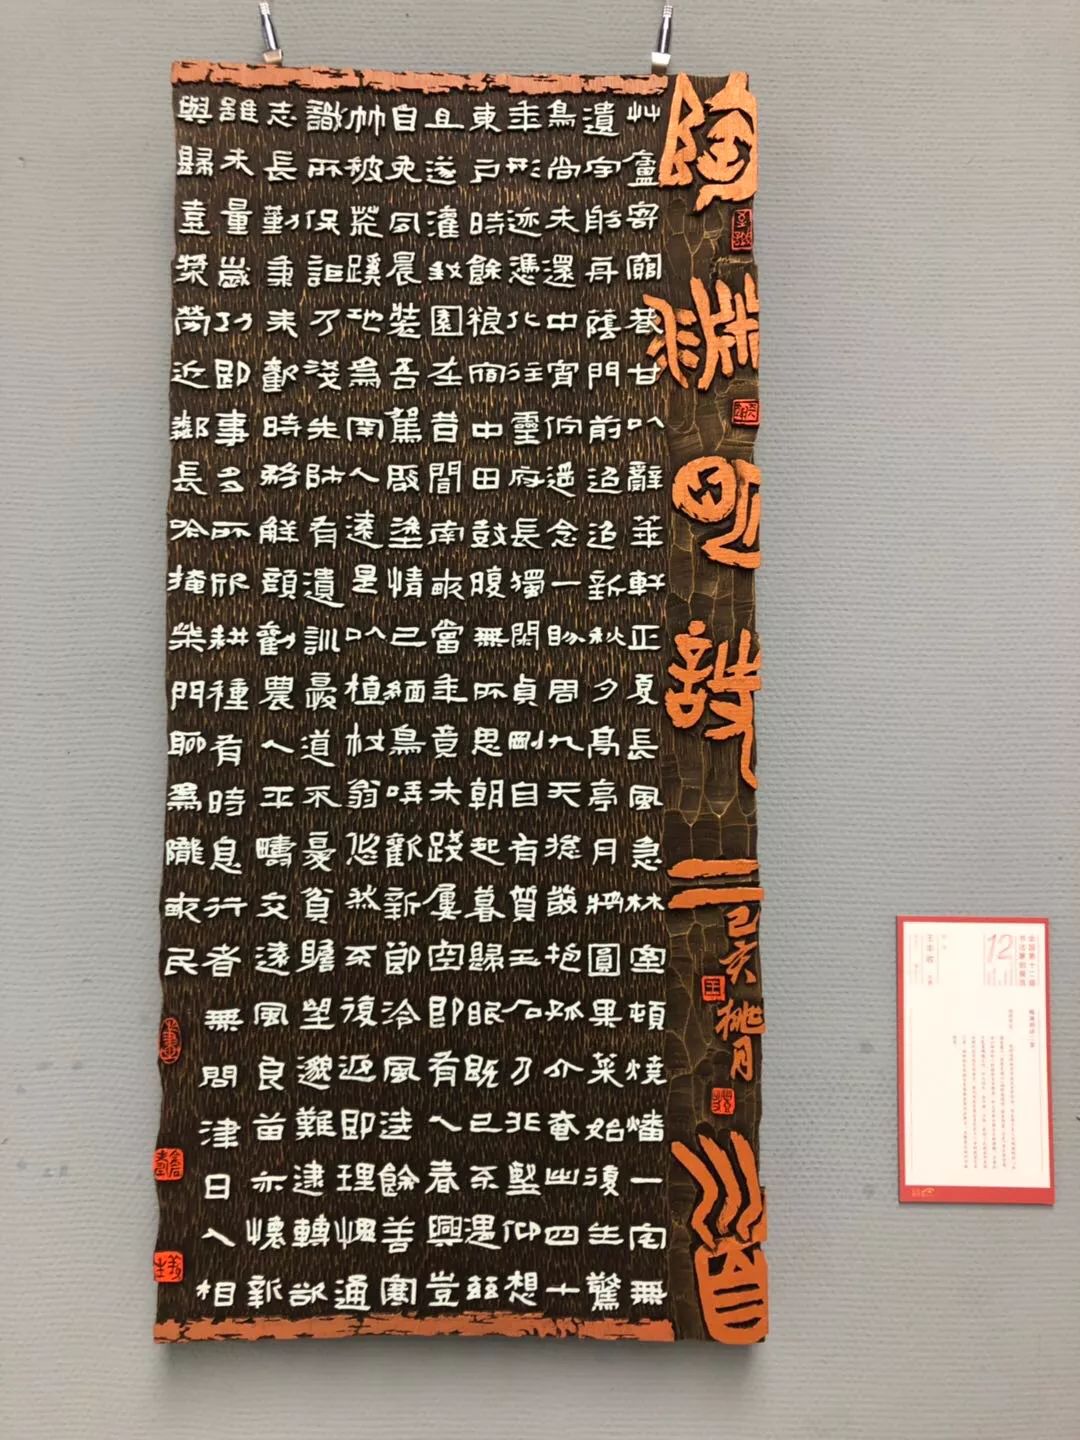 陶淵明詩二首
己亥桃月
艸廬寄窮巷甘以辭華軒正夏長風急林室頓燒燔一宅無
遺宇舫舟蔭門前迢迢新秋夕亭亭月將圓果菜始復生驚
鳥尚未還中宵佇遙念一盼周九天總髮抱孤介奄出四十
年形迹憑化往靈府長獨閑貞剛自有質玉石乃非堅仰想
東戶時餘糧宿中田鼓腹無所思朝起暮歸眠既已不遇茲
且遂灌我園在昔聞南畝當年竟未踐屢空即有人春興豈
自免夙晨裝吾駕啟塗情已緬鳥哢歡新節泠風送餘善寒
竹被荒蹊地為罕人遠是以植杖翁悠然不復返即理愧通
識所保詎乃淺先師有遺訓憂道不憂貧瞻望邈難逮轉欲
志長勤秉耒歡時務解顏勸農人平疇交遠風良苗亦懷新
雖未量歲功即事多所欣耕種有時息行者無問津日入相
與歸壺漿勞近鄰長吟掩柴門聊為隴畝民
全国第十二届
书法篆刻展览
12